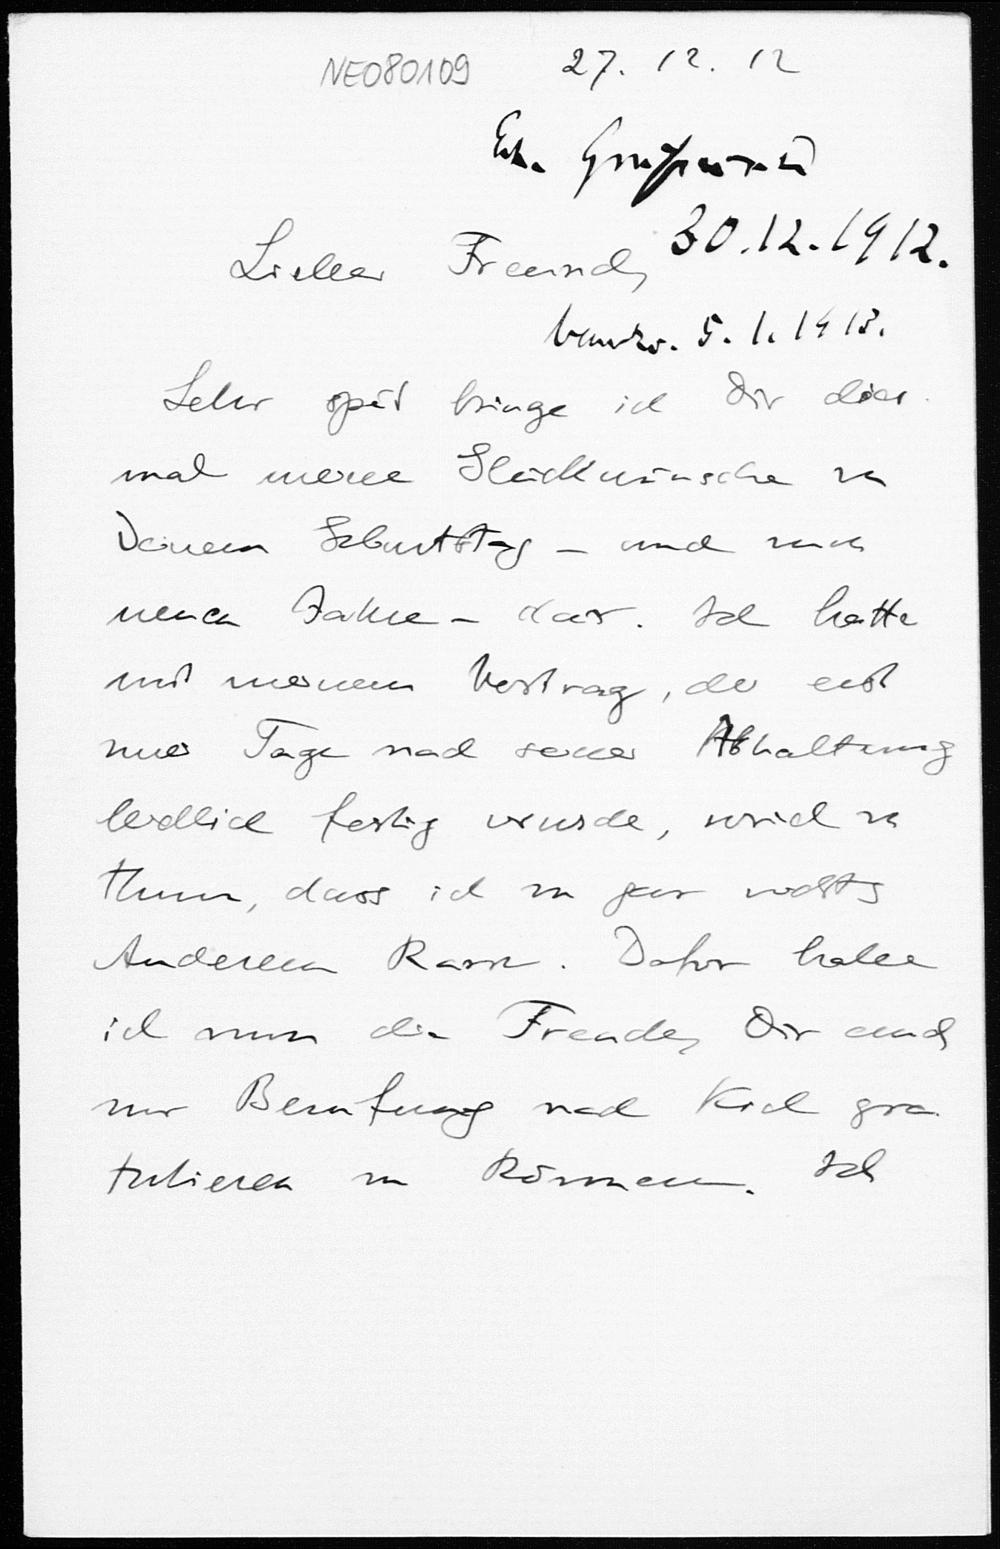 NE080109
27. 12. 12
Erh. Greifswald
30.12.1912.
Lieber Freund,
beantw. 5. 1. 1913.
Sehr spät bringe ich Dir dies-
mal meine Glückwünsche zu
Deinem Geburtstag – und zum
neuen Jahre – dar. Ich hatte
mit meinem Vortrag, der erst
Tage nach seiner Abhaltung
leidlich fertig wurde, soviel zu
thun, dass ich zu gar nichts
Anderem kam. Dafür habe
ich nun die Freude, Dir auch
zur Berufung nach Kiel gra-
tulieren zu können. Ich